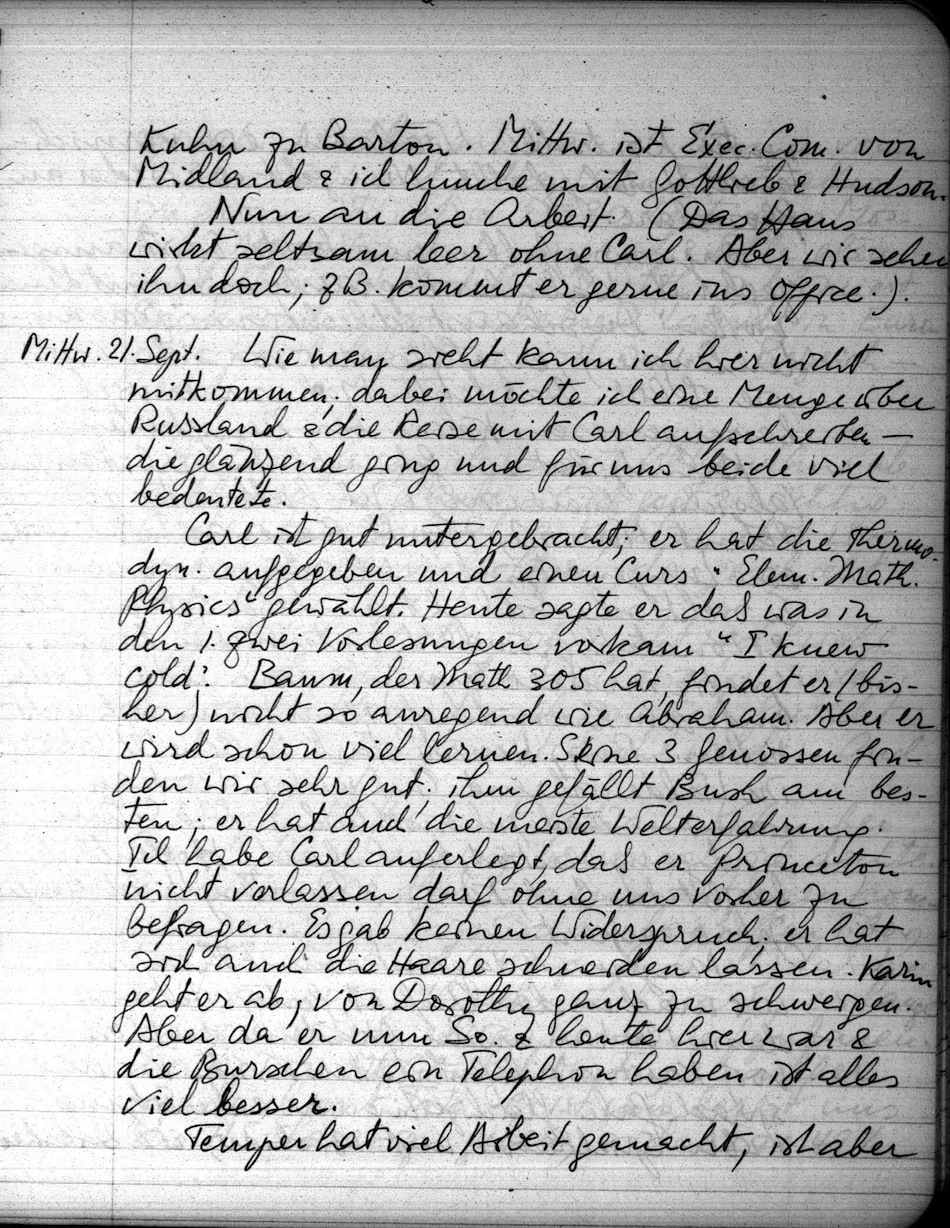 Kuhn zu Barton. Mittw. ist Exec. Com. von
Midland & ich lunche mit Gottlieb & Hudson.
Nun an die Arbeit. (Das Haus
wirkt seltsam leer ohne Carl. Aber wir sehen
ihn doch; z.B. kommt er gerne ins Office.).
Mittw. 21. Sept. Wie man sieht kann ich hier nicht
mitkommen; dabei möchte ich eine Menge über
Russland & die Reise mit Carl aufschreiben —
die glänzend ging und für uns beide viel
bedeutete.
Carl ist gut untergebracht; er hat die Thermo-
dyn. aufgegeben und einen Curs "Elem. Math.
Physics" gewählt. Heute sagte er daß was in
den 1. zwei Vorlesungen vorkam "I knew
cold". Baum, der Math 305 hat, findet er (bis-
her) nicht so anregend wie Abraham. Aber er
wird schon viel lernen. Seine 3 Genossen fin-
den wir sehr gut; ihm gefällt Bush am bes-
ten; er hat auch die meiste Welterfahrung.
Ich habe Carl auferlegt, daß er Princeton
nicht verlassen darf ohne uns vorher zu
befragen. Es gab keinen Widerspruch; er hat
sich auch die Haare schneiden lassen. Karin
geht er ab, von Dorothy ganz zu schweigen.
Aber da er nun So. & heute hier war &
die Burschen ein Telephon haben ist alles
viel besser.
Temper hat viel Arbeit gemacht, ist aber